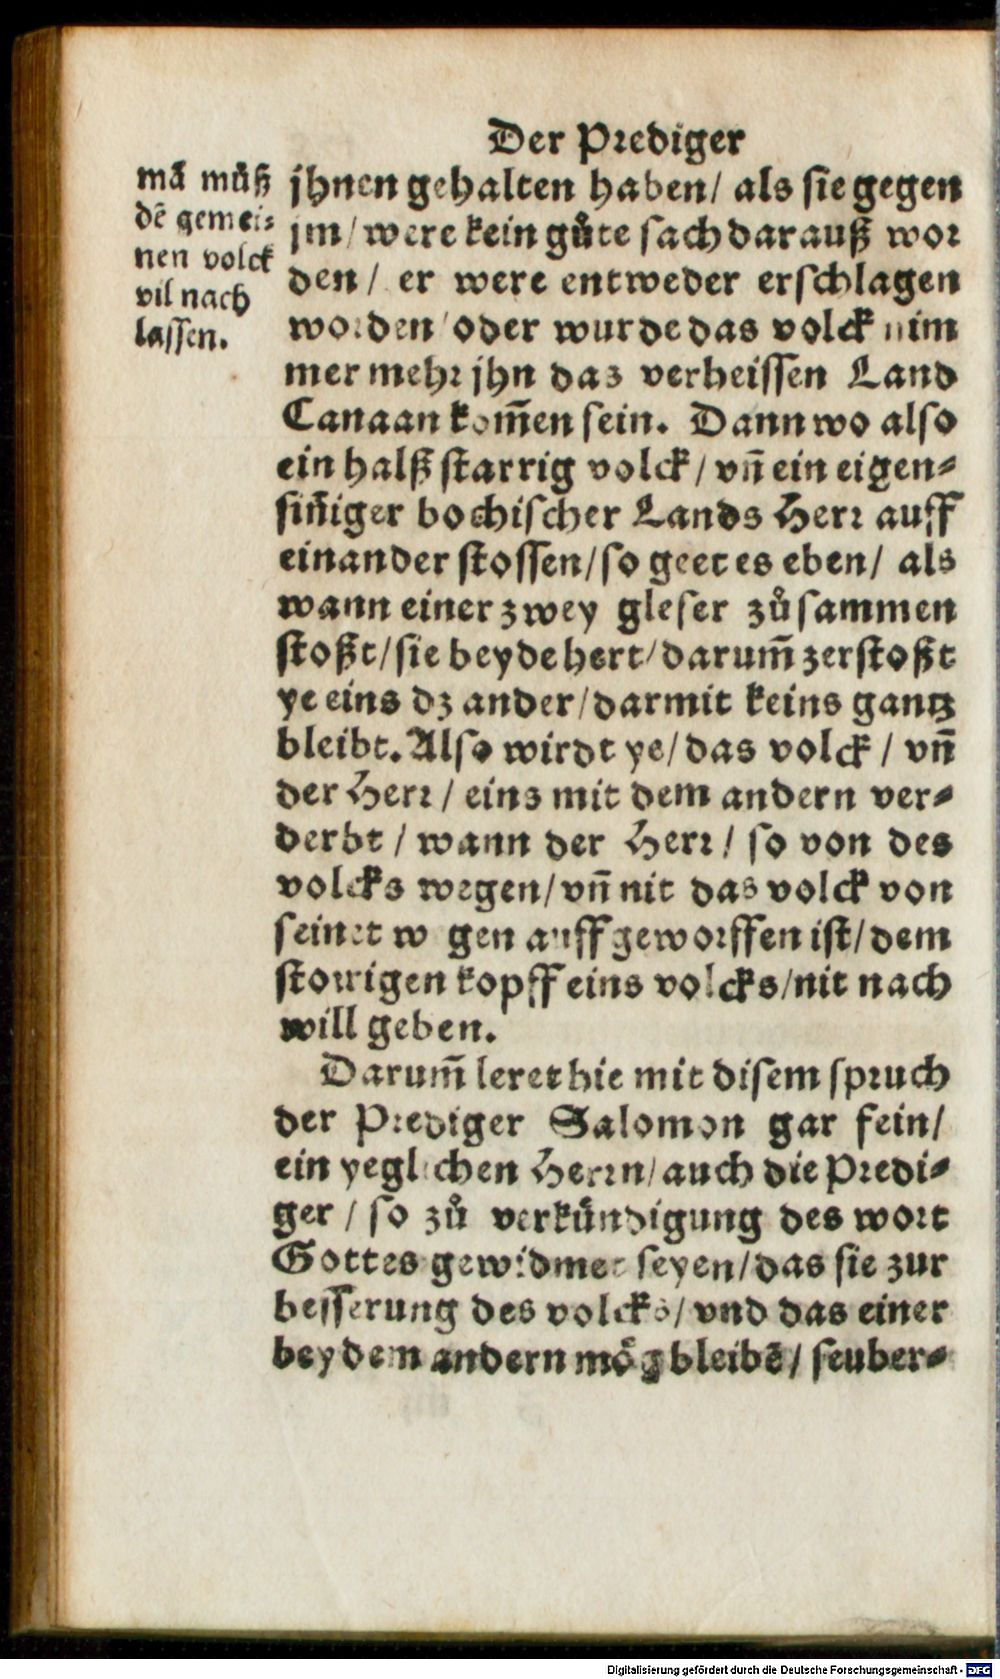 Der Prediger
mā můß
dē gemei-
nen volck
vil nach
lassen.
jhnen gehalten haben/ als sie gegen
jm/ were kein gůte sach darauß wor
den/ er were entweder erschlagen
worden/ oder wurde das volck nim
mer mehr jhn das verheissen Land
Canaan kom̄en sein. Dann wo also
ein halßstarrig volck/ vn̄ ein eigen-
sin̄iger bochischer Lands Herr auff
einander stossen/ so geet es eben/ als
wann einer zwey gleser zůsammen
stoßt/ sie beyde hert/ darum̄ zerstoßt
ye eins dz ander/ darmit keins gantz
bleibt. Also wirdt ye/ das volck/ vn̄
der Herr/ eins mit dem andern ver-
derbt/ wann der Herr/ so von des
volcks wegen/ vn̄ nit das volck von
seinet wegen auffgeworffen ist/ dem
storrigen kopff eins volcks/ nit nach
will geben.
Darum̄ leret hie mit disem spruch
der Prediger Salomon gar fein/
ein yeglichen Herrn/ auch die Predi-
ger/ so zů verkündigung des wort
Gottes gewidmet seyen/ das sie zur
besserung des volcks/ vnd das einer
bey dem andern mög bleibē/ seuber-
Digitalisierung gefördert durch die Deutsche Forschungsgemeinschaft - DFG